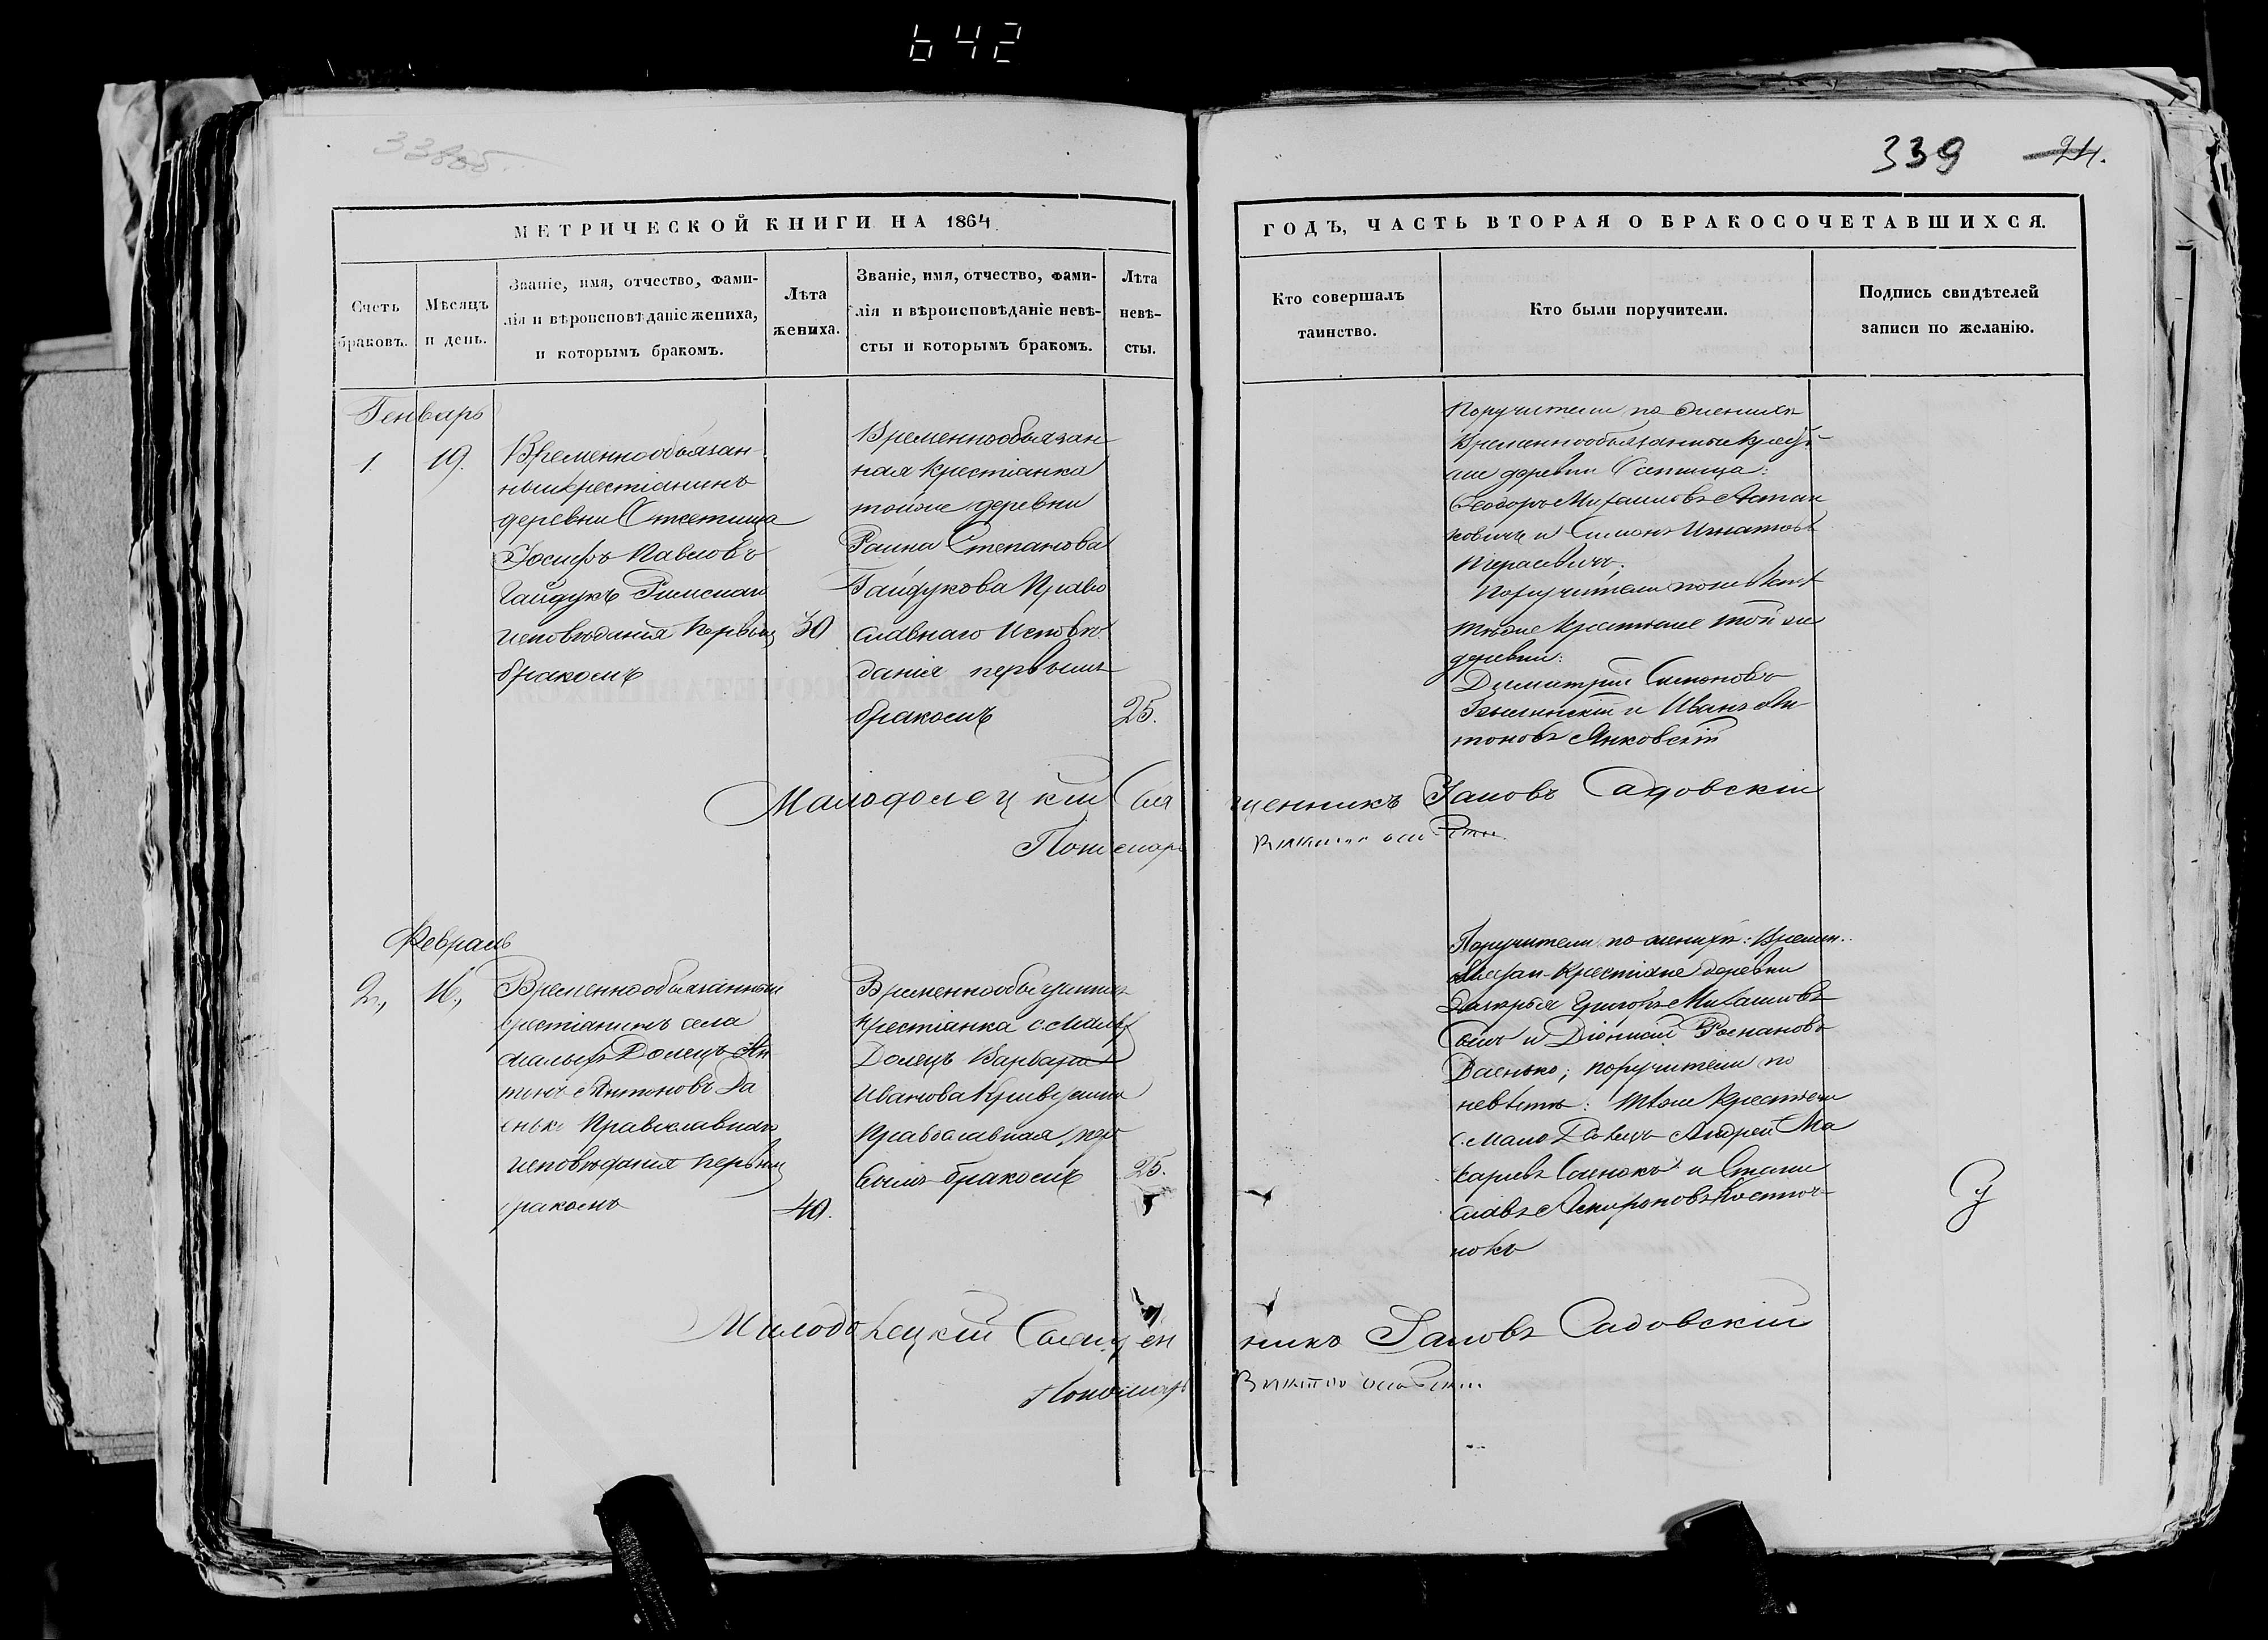 642
338об.
339 24.
МЕТРИЧЕСКОЙ КНИГИ НА 1864
ГОДЪ, ЧАСТЬ ВТОРАЯ О БРАКОСОЧЕТАВШИХСЯ.
Счетъ
браковъ.
Мѣсяцъ
и день.
Званіе, имя, отчество, фами-
лія и вѣроисповѣданіе жениха,
и которымъ бракомъ.
Лѣта
жениха.
Званіе, имя, отчество, фами-
лія и вѣроисповѣданіе невѣ-
сты и которымъ бракомъ.
Лѣта
невѣ-
сты.
Кто совершалъ
таинство.
Кто были поручители.
Подпись свидѣтелей
записи по желанію.
Генварь
1 19.
Временнообязан-
ный крестіанинъ
деревни
Іосифъ Павловъ
Гайдукъ Римскаго
исповѣданія первымъ
бракомъ
30
Временнообязан
ная крестіанка
тойже деревни
Раина Степанова
Гайдукова Право
славнаго исповѣ
данія первымъ
бракомъ
25.
Поручители по женихѣ
Временнообязанные крестя-
не деревни
Ѳеодоръ Михаиловъ
и Симонъ Игнатовъ
Поручители по невѣстѣ
тѣже крестяне той же
деревни:
Димитрій Симоновъ
и Иванъ Ан
тоновъ Янковскій
Малодолецкій Свя
щенникъ Іаковъ Садовскій
Пономарь
Февраль
2., 16.,
Временнообязанный
крестіанинъ села
Малыхъ Долецъ Ан
тонъ Антоновъ Ва
сько Православнаго
исповѣданія первымъ
бракомъ
40.
Временнообязанная
крестіанка с. Малыхъ
Долецъ Варвара
Иванова
Православная, пер
вымъ бракомъ
25.
Поручители по женихѣ: Времен.
обязан. крестіане деревни
Григорій Михаиловъ
и Діонисій Романовъ
Васько; поручители по
невѣстѣ: тѣже крестьяне
с. Мало Долецъ Андрей Ма
каріевъ и Стани
славъ
нокъ
Малодолецкій Священ
никъ Іаковъ Садовскій
Пономарь